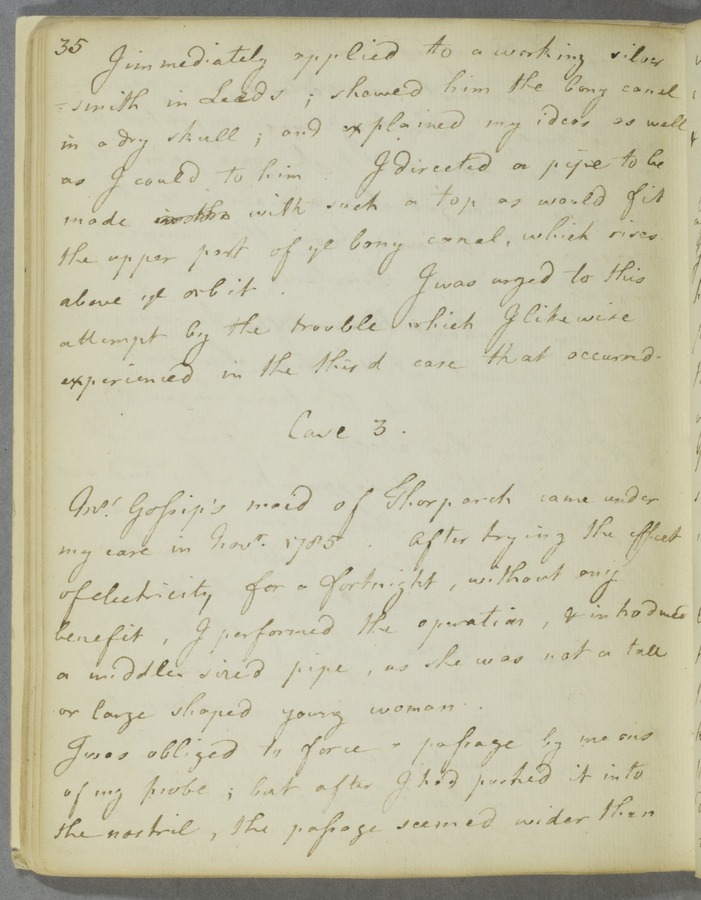 35
I immediately applied to a working silver
=smith in Leeds ; shewed him the bony canal
in a dry skull ; and explained my ideas as well
as I could to him . I directed a pipe to be
made with such a top as would fit
the upper part of ye bony canal, which rises
above ye orbit . I was urged to this
attempt by the trouble which I likewise
experienced in the third case that occurred.
Case 3 .
Mrs. Gossip's maid of Thorparch came under
my care in Novr. 1785 . After trying the effect
of electricity for a fortnight , without any
benefit , I performed the operation , & introduced
a middle sized pipe , as she was not a tall
or large shaped young woman .
I was obliged to force a passage by means
of my probe ; but after I had pushed it into
the nostril , the passage seemed wider than